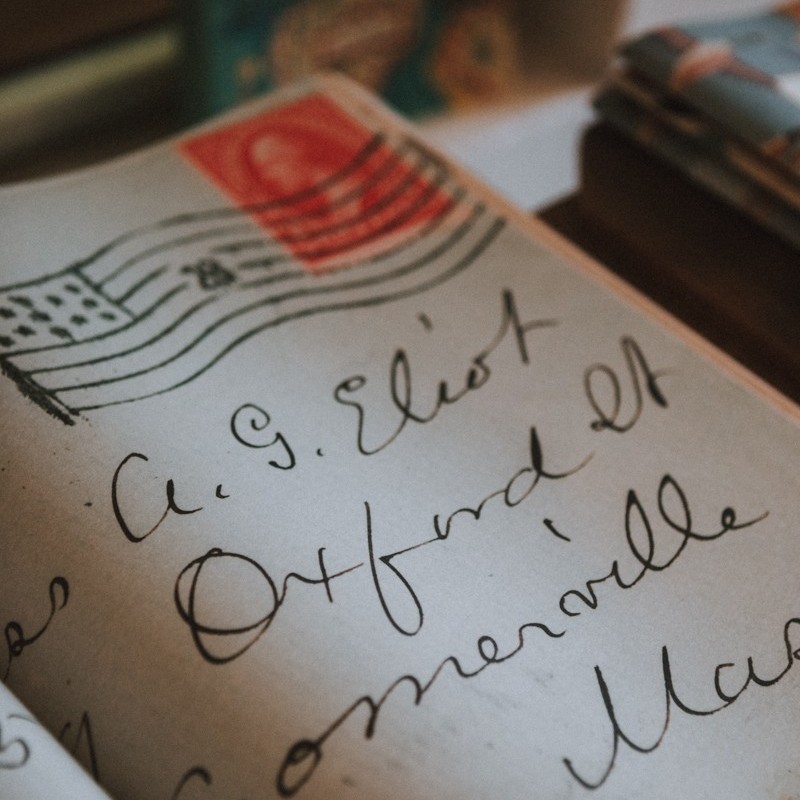 A. G. Eliot
Oxford St
Somerville
Mas